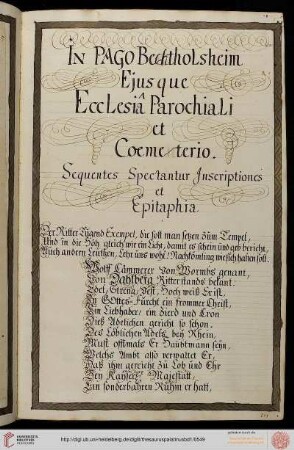 IN PAGO Bechtholsheim
Ejusque
Ecclesiâ Parochiali
et
Coemeterio.
Sequentes Spectantur Inscriptiones
et
Epitaphia.
Der Ritter Tugend Exempel, die soll man setzen Zum Tempel,
Und in die Höh gleich wie ein Licht, damit es schein und geb bericht,
Auch andern Leuthen, Lehr uns wohl Nachkömling
Wolff Cämmerer Von Wormbs genant,
Von Dahlberg Ritter stands bekant.
Edel, Streng, Vest, Hoch weiß Er ist,
In Gottes-Fürcht ein frommer Christ,
Ein Liebhaber, ein Zierd und Cron
Des Adelichen gericht so schon.
Des Löblichen Adels, beÿ Rhein,
Must offtmals Er Haubtmann seÿn.
Welchs Ambt also verwaltet Er,
Daß ihm gereicht zu Lob und Ehr
Den Kaÿserl. Majestätt,
Zur sonderbahren Ruhm er hatt,
http://digi.ub.uni-heidelberg.de/diglit/thesauruspalatinusbd1/0549